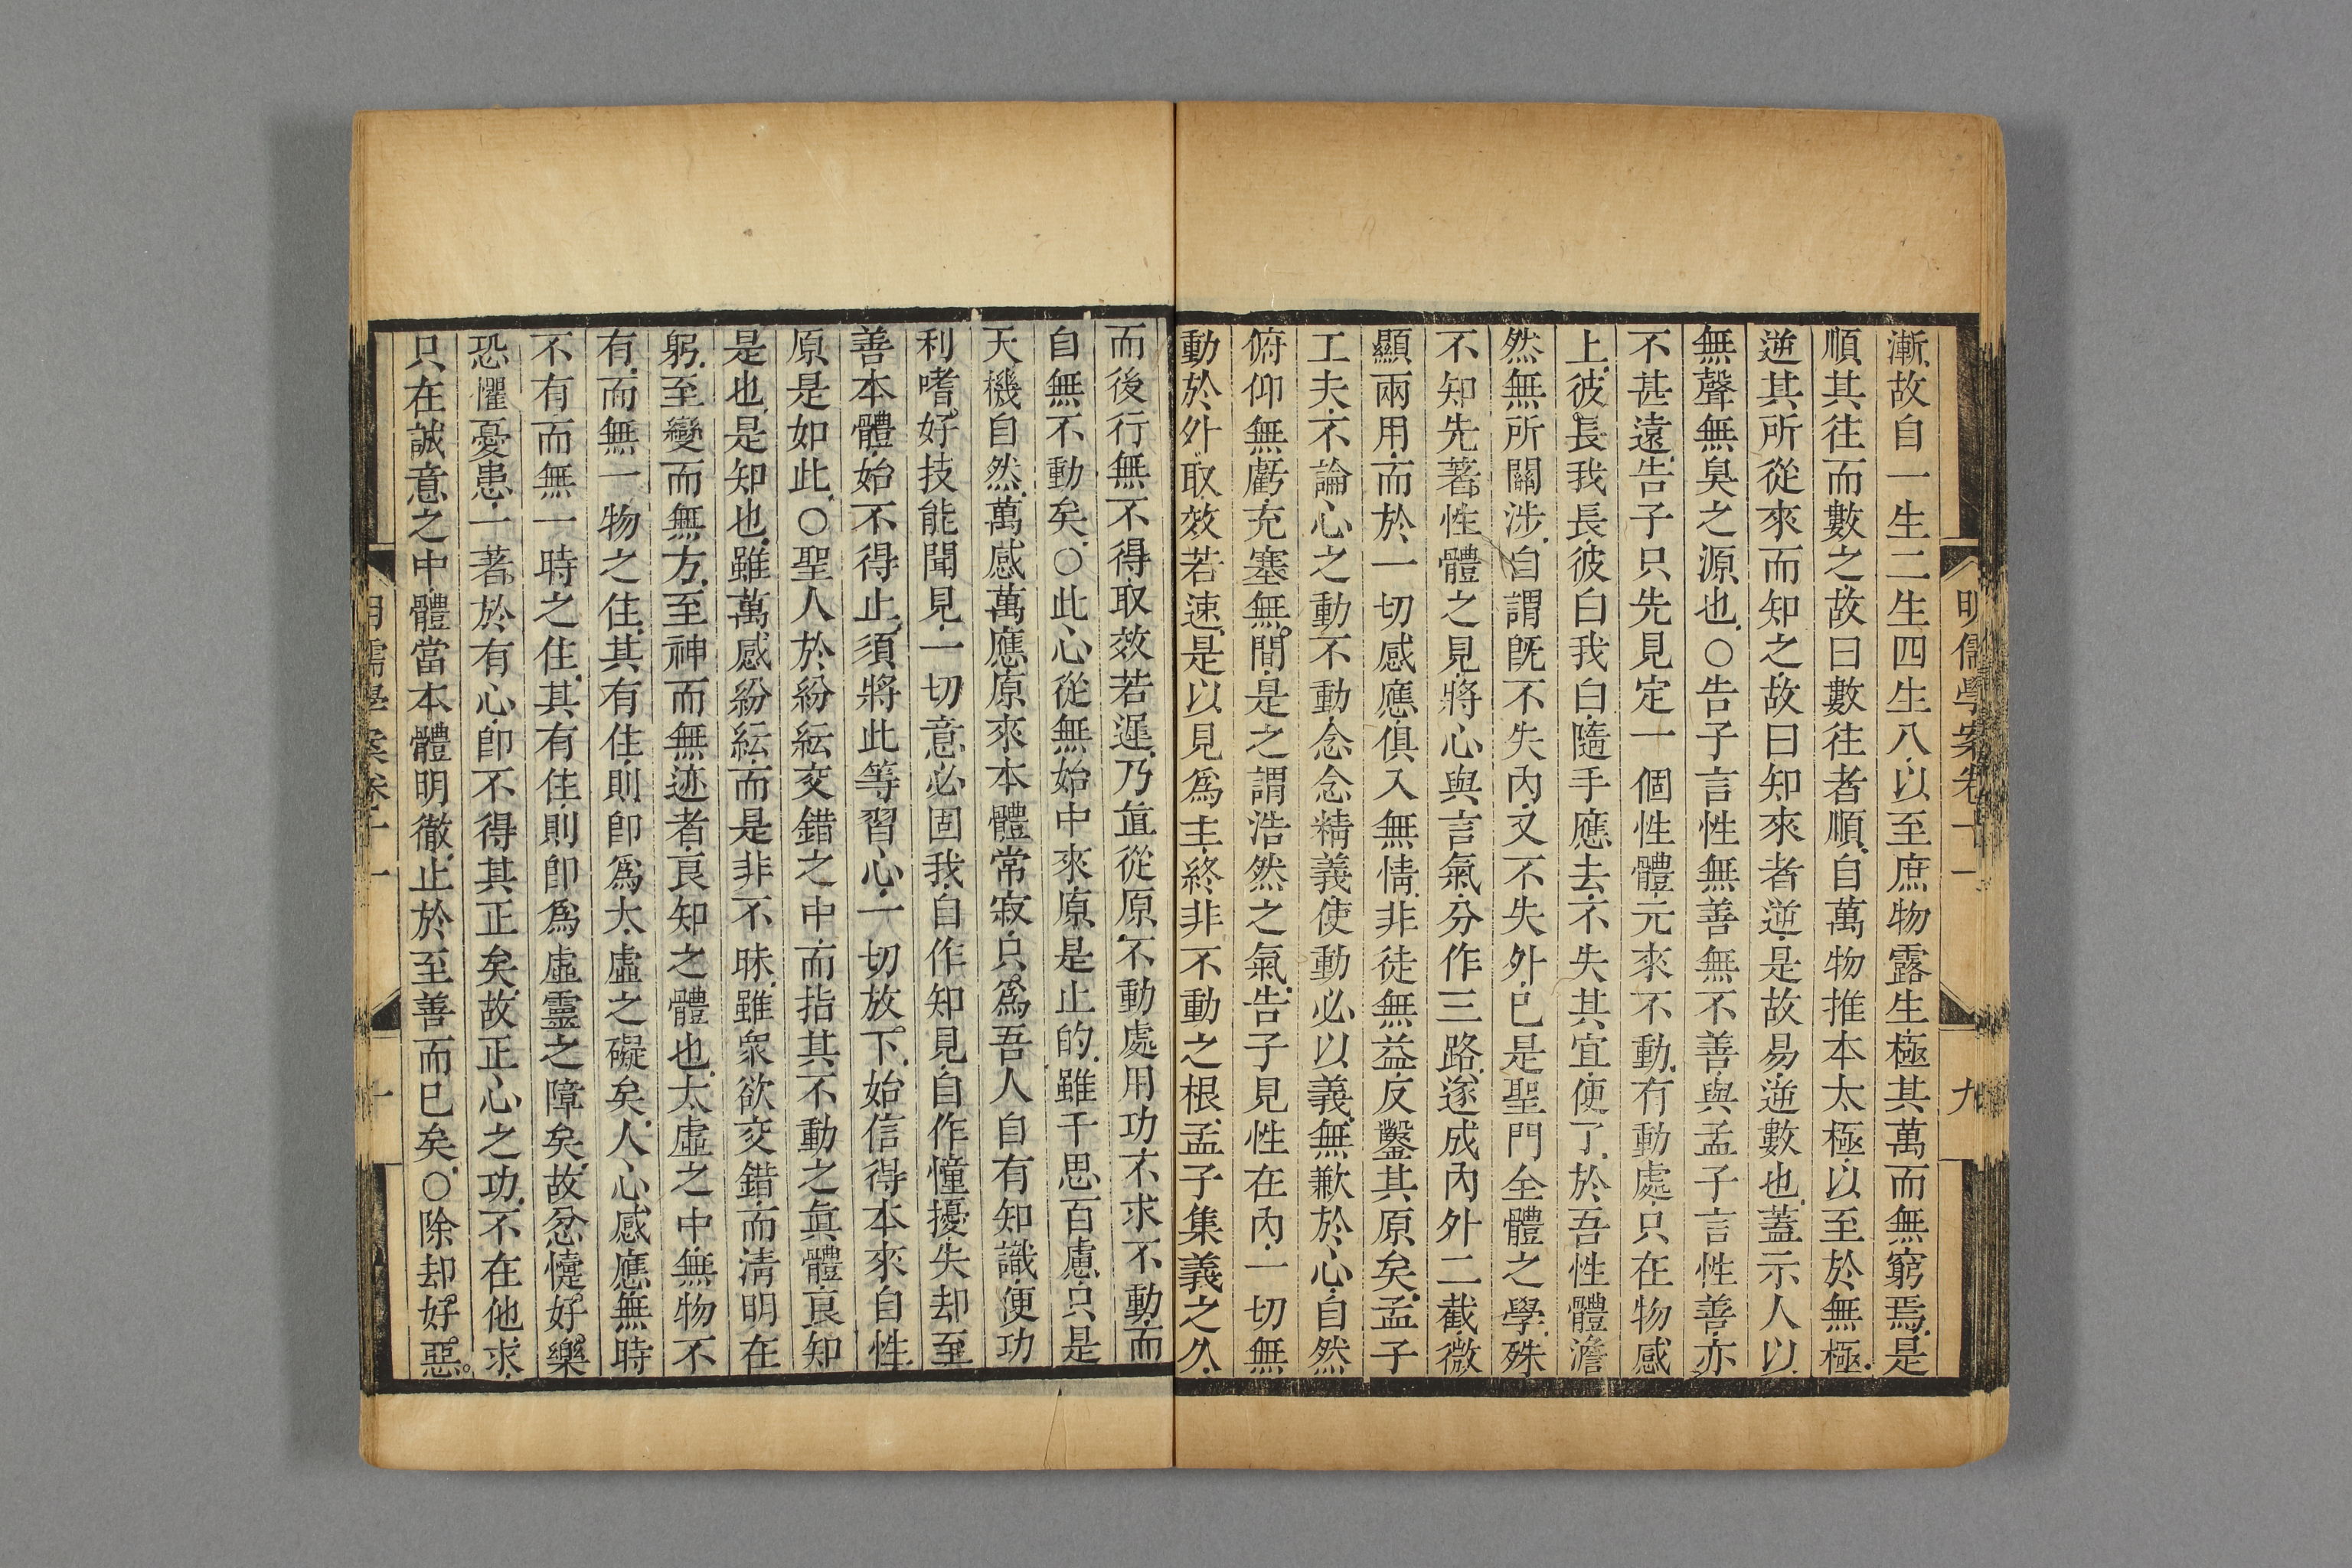 明儒學案卷十一
九
漸故自一生二生四生八以至庶物露生極其萬而無窮焉是
順其往而數之故曰數往者順自萬物推本太極以至於無極
逆其所從來而知之故曰知來者逆是故易逆數也蓋示人以
無聲無臭之源也○告子言性無善無不善與孟子言性善亦
不甚遠告子只先見定一個性體元來不動有動處只在物感
上彼長我長彼白我白隨手應去不失其宜便了於吾性體澹
然無所關涉自謂既不失內又不失外已是聖門全體之學殊
不知先著性體之見將心與言氣分作三路遂成內外二截微
顯兩用而於一切感應俱入無情非徒無益反鑿其原矣孟子
工夫不論心之動不動念念精義使動必以義無歉於心自然
俯仰無虧充塞無間是之謂浩然之氣告子見性在內一切無
動於外取效若速是以見爲主終非不動之根孟子集義之久
而後行無不得取效若遲乃直從原不動處用功不求不動而
自無不動矣○此心從無始中來原是止的雖千思百慮只是
天機自然萬感萬應原來本體常寂只爲吾人自有知識便功
利嗜好技能聞見一切意必固我自作知見自作憧擾失却至
善本體始不得止須將此等習心一切放下始信得本來自性
原是如此○聖人於紛紜交錯之中而指其不動之眞體良知
是也是知也雖萬感紛紜而是非不昧雖衆欲交錯而淸明在
躬至變而無方至神而無迹者良知之體也太虛之中無物不
有而無一物之住其有住則卽爲太虛之礙矣人心感應無時
不有而無一時之住其有住則卽爲虛靈之障矣故忿懥好樂
恐懼憂患一著於有心卽不得其正矣故正心之功不在他求
只在誠意之中體當本體明徹止於至善而已矣○除却好惡
明儒學案卷十一
十